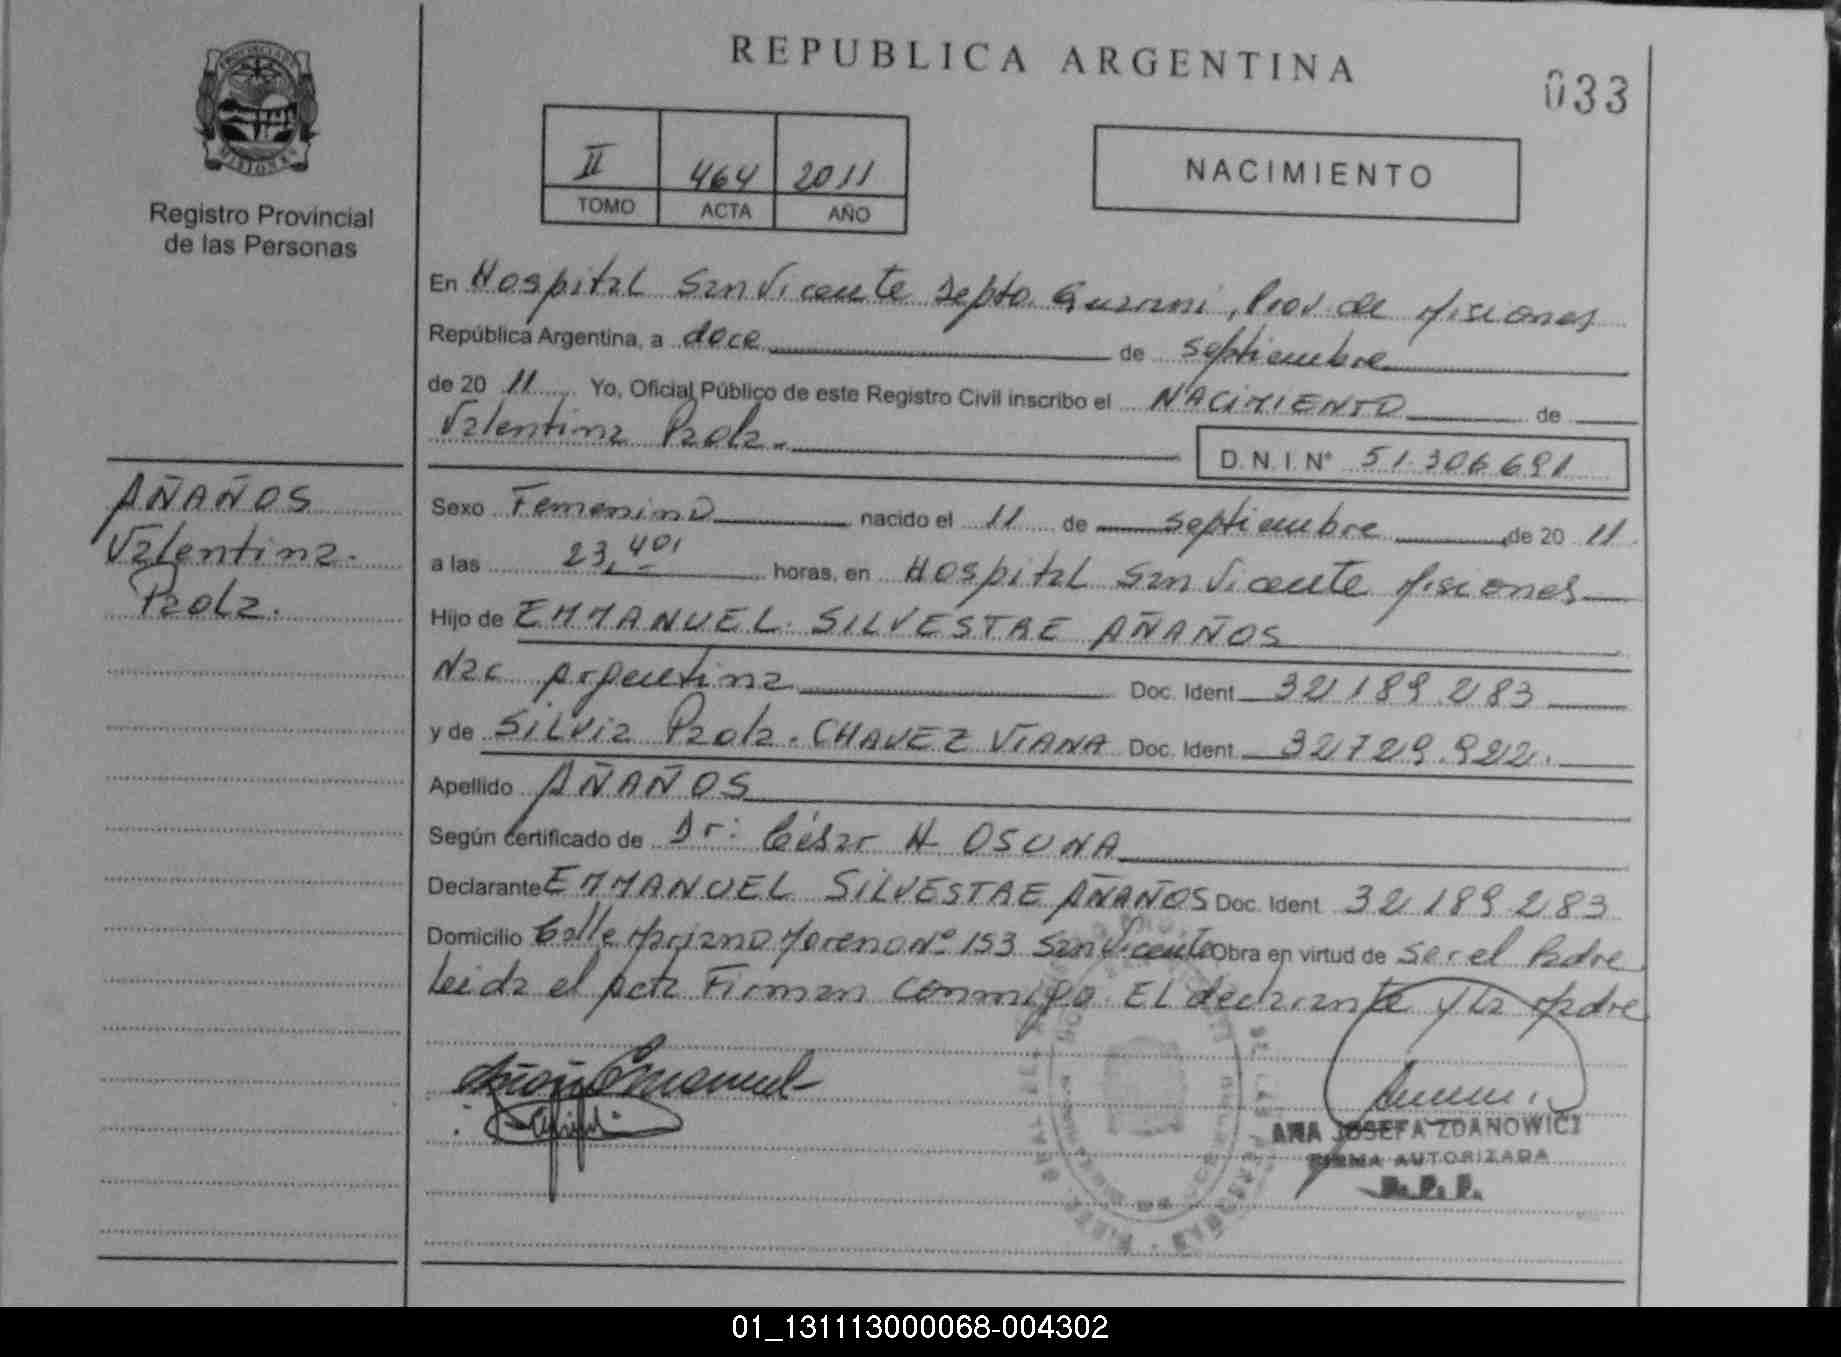 REPUBLICA ARGENTINA
033
PROVINCIA DE MISIONES
Registro Provincial
de las Personas
II 464 2011
TOMO ACTA AÑO
NACIMIENTO
En Hospital San Vicente Depto. Guarani, Prov. de Misiones
República Argentina, a doce de septiembre
de 20 11 Yo, Oficial Público de este Registro Civil inscribo el NACIMIENTO de
Valentina Paola.
D.N.I. Nº 51.306.691
AÑAÑOS
Valentina.
Paola.
Sexo Femenino nacido el 11 de septiembre de 20 11
a las 23,40' horas, en Hospital San Vicente Misiones
Hijo de EMMANUEL SILVESTRE AÑAÑOS
Nac Argentina Doc. Ident. 32.189.283
y de SILVIA Paola. CHAVEZ VIANA Doc. Ident. 32.729.922.
Apellido AÑAÑOS
Según certificado de Dr: César H OSUNA
Declarante EMMANUEL SILVESTRE AÑAÑOS Doc. Ident. 32.189.283
Domicilio Calle Mariano Moreno Nº 153 San Vicente Obra en virtud de Ser el Padre
Leida el Acta Firman Conmigo El declarante y la Madre
ANA JOSEFA ZDANOWICZ
FIRMA AUTORIZADA
R.P.P.
01_131113000068-004302